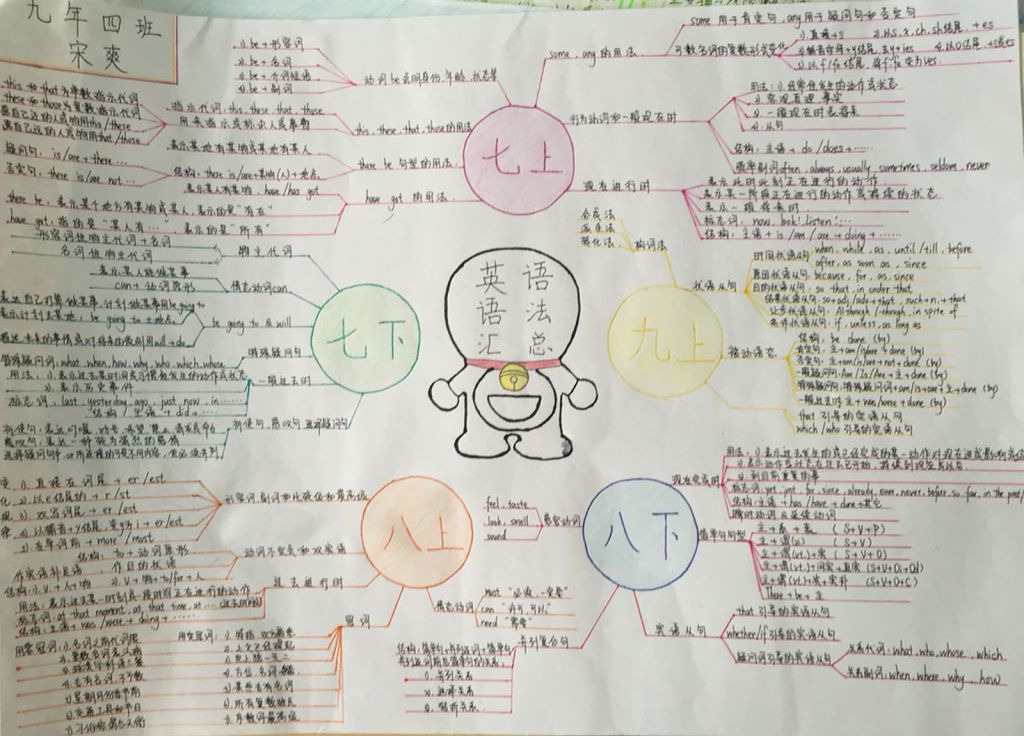 九年四班
宋爽
英语
语法
汇总
七上
some, any 的用法
some 用于肯定句, any 用于疑问句和否定句
可数名词的复数形式变化
1). 直接+s
2). 以s, x, ch, sh结尾, +es
3). 辅音字母+y结尾, 去y+ies
5). 以f/fe结尾, 将f/fe变为ves.
行为动词和一般现在时
用法: 1). 经常性发生的动作或状态
2). 客观真理, 事实
3). 一般现在时表将来
4). 从句
结构: 主语 + do /does+……
频率副词often, always, usually, sometimes, seldom, never
现在进行时
表示此时此刻正在进行的动作
表示某一阶段正在进行的动作或持续的状态
表示一般将来时
标志词: now, look!, listen!…
结构: 主语 + is /am /are + doing +……
动词be说明身份, 年龄, 状态等
1). be + 形容词
2). be + 名词
3). be + 介词短语
4). be + 副词
this, these, that, those的用法
指示代词: this, these, that, those
用来指示或标识人或事物
this 和 that 为单数指示代词
these 和 those为复数指示代词
离自己近的人或物用this /these
离自己远的人或物用that /those
there be 句型的用法.
表示某地有某物或某地有某人
结构: there is/are+某物(人)+地点.
疑问句: is/are + there…
否定句: there is/are not …
have got 的用法.
表示某人有某物, have /has got
there be, 表示某个地方有某物或某人, 表示的是“存在”
have got, 指的是“某人有…, 表示的是“所有”
七下
物主代词
形容词性物主代词+名词
名词性物主代词
情态动词can
表示某人能做某事
can + 动词原形
be going to & will
表达自己打算做某事, 计划做某事用be going to
表示计划去某地, be going to +地点.
特殊疑问句
特殊疑问词: what, when, how, why, who, which, whose
一般过去时
用法: 1). 表示过去某时间或习惯性发生的动作或状态
2). 表示历史事件
标志词, last, yesterday, ago, just now, in……
结构: 主语 + did +……
祈使句, 感叹句, 选择疑问句
感叹句: 表达一种较为强烈的感情
九上
构词法
合成法
派生法
转化法,
状语从句
时间状语从句: when, while, as, until /till, before
after, as soon as, since
原因状语从句: because, for, as, since
目的状语从句: so that, in order that
结果状语从句: so+adj./adv.+that, such+n.+that
让步状语从句: Although /though, in spite of
条件状语从句: if, unless, as long as
被动语态
结构: be done (by)
肯定句: 主+am/is/are+done (by)
否定句: 主+am/is/are+not+done (by)
一般疑问句: Am /Is /Are + 主 + done (by)
特殊疑问句: 特殊疑问词+am/is+are+主+done (by)
一般过去时: 主+was/were+done (by)
that 引导的宾语从句
which /who 引导的定语从句
八上
形容词, 副词和比较级和最高级
1). 直接在词尾 + er /est
2). 以e结尾的 + r /st
3). 双写词尾 + er /est
4). 以辅音+y结尾, 变y为i + er/est
5). 在单词前 + more /most
动词不定式和双宾语
结构: to + 动词原形
作宾语补足语, 作目的状语
结构: 1). V + 人 + 物
2). V + 物 + to/for + 人
过去进行时
用法: 表示过去某一时刻或一段时间正在进行的动作
标志词, at that moment, at that time, at……
结构: 主语 + was /were + doing +……
冠词
用零冠词:
用定冠词: 1). 特指, 双方熟悉
2). 上文已经提起
3). 世上独一无二
4). 方位, 名词, 乐器
6). 所有复数姓氏
7). 序数词最高级
感官动词
feel, taste
look, smell
sound
情态动词
must “必须, 一定要”
can “许可, 可以”
need “需要”
八下
现在完成时
2). 表示动作或状态在过去已开始, 持续到现在或以后.
3). 到目前重复的事
标志词: yet, just, for, since, already, ever, never, before, so far, in the past/
结构: 主语 + has /have + done + 其它
瞬时动词 & 延续动词
简单句句型
主 + 系 + 表 (S+V+P)
主 + 谓(vi) (S+V)
主 + 谓(vt.)+宾 (S+V+O)
主+谓(vt.)+间宾+直宾 (S+V+Oi+Od)
主+谓(vt.)+宾+宾补 (S+V+O+C)
There + be + 主
宾语从句
that 引导的宾语从句
whether/if引导的宾语从句
疑问词引导的宾语从句
关系代词: what, who, whose, which.
关系副词: when, where, why, how
并列复合句
结构: 简单句+并列连词+简单句
1). 并列关系
2). 选择关系
3). 转折关系.